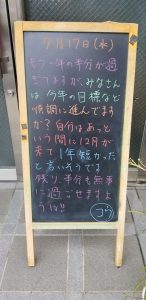 7月17日(水)
もう一年の半分が過
ぎてますが、みなさん
は、今年の目標など
順調に進んでます
か?自分はあっと
いう間に12月が
来て1年短かった
と言いそうです
残り半分も無事
に過ごせますよ
うに!!